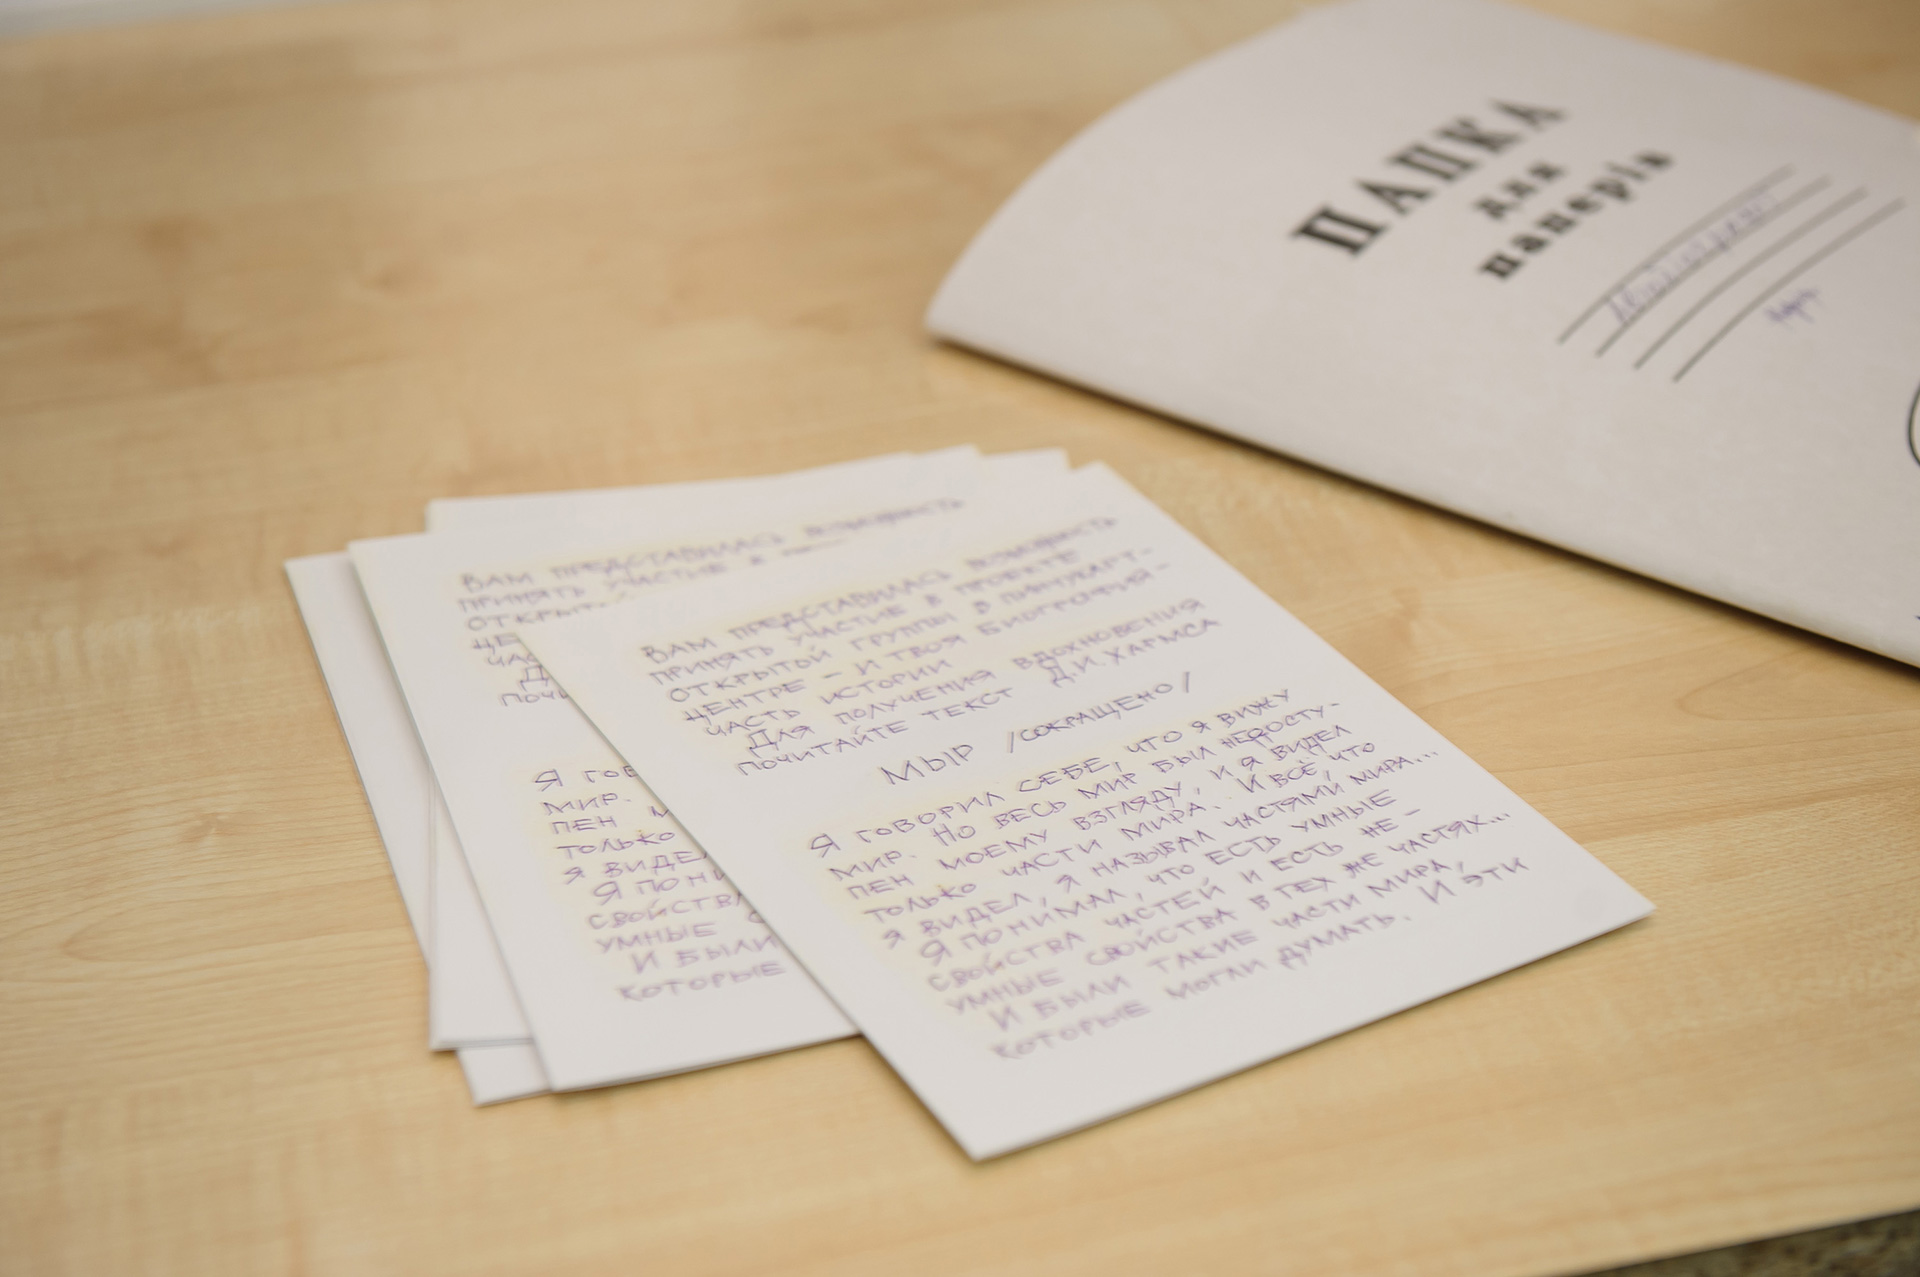 ПАПКА
для
паперів
ВАМ ПРЕДСТАВИЛАСЬ ВОЗМОЖНОСТЬ
ПРИНЯТЬ УЧАСТИЕ В
ОТКРЫТ
ЦЕ
ЧАС
Д
ПОЧИ
Я ГОВ
МИР.
ПЕН М
ТОЛЬКО
Я ВИДЕЛ
Я ПОНИ
СВОЙСТВА
УМНЫЕ С
И БЫЛИ
КОТОРЫЕ
ВАМ ПРЕДСТАВИЛАСЬ ВОЗМОЖНОСТЬ
ПРИНЯТЬ УЧАСТИЕ В ПРОЕКТЕ
ОТКРЫТОЙ ГРУППЫ В ПИНЧУКАРТ-
ЦЕНТРЕ – И ТВОЯ БИОГРАФИЯ –
ЧАСТЬ ИСТОРИИ
ДЛЯ ПОЛУЧЕНИЯ ВДОХНОВЕНИЯ
ПОЧИТАЙТЕ ТЕКСТ Д.И. ХАРМСА
МЫР /СОКРАЩЕНО/
Я ГОВОРИЛ СЕБЕ, ЧТО Я ВИЖУ
МИР. НО ВЕСЬ МИР БЫЛ НЕДОСТУ-
ПЕН МОЕМУ ВЗГЛЯДУ, И Я ВИДЕЛ
ТОЛЬКО ЧАСТИ МИРА. И ВСЁ, ЧТО
Я ВИДЕЛ, Я НАЗЫВАЛ ЧАСТЯМИ МИРА...
Я ПОНИМАЛ, ЧТО ЕСТЬ УМНЫЕ
СВОЙСТВА ЧАСТЕЙ И ЕСТЬ НЕ –
УМНЫЕ СВОЙСТВА В ТЕХ ЖЕ ЧАСТЯХ...
И БЫЛИ ТАКИЕ ЧАСТИ МИРА,
КОТОРЫЕ МОГЛИ ДУМАТЬ. И ЭТИ